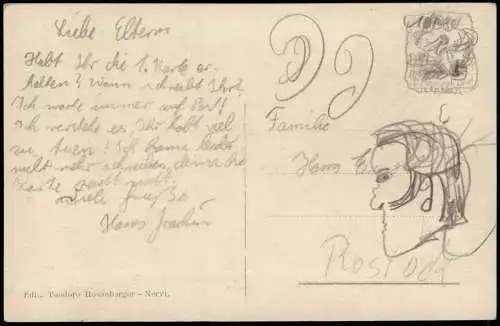 Liebe Eltern
Habt Ihr die 1. Karte er-
halten? Wann schreibt Ihr?
Ich warte immer auf Post!
Ich verstehe es, Ihr habt viel
zu tuen! Ich kann leider
nicht mehr schreiben, denn die
Karte reicht nicht!
Viele Grüße
Hans Joachim
Familie
Hans
Rostock
Edit. Teodoro Rosenberger – Nervi.